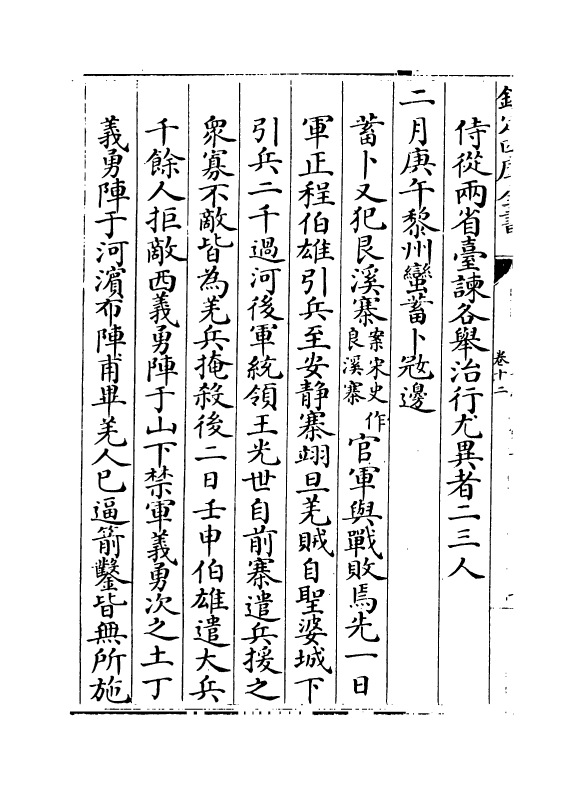 欽定四庫全書
卷十二
侍從兩省臺諫各舉治行尤異者二三人
二月庚午黎州蠻蓄卜寇邊
蓄卜又犯艮溪寨案宋史作良溪寨官軍與戰敗焉先一日
軍正程伯雄引兵至安静寨翊旦羌賊自聖婆城下
引兵二千過河後軍統領王光世自前寨遣兵援之
衆寡不敵皆為羌兵掩殺後二日壬申伯雄遣大兵
千餘人拒敵西義勇陣于山下禁軍義勇次之土丁
義勇陣于河濱布陣甫畢羌人已逼箭鑿皆無所施